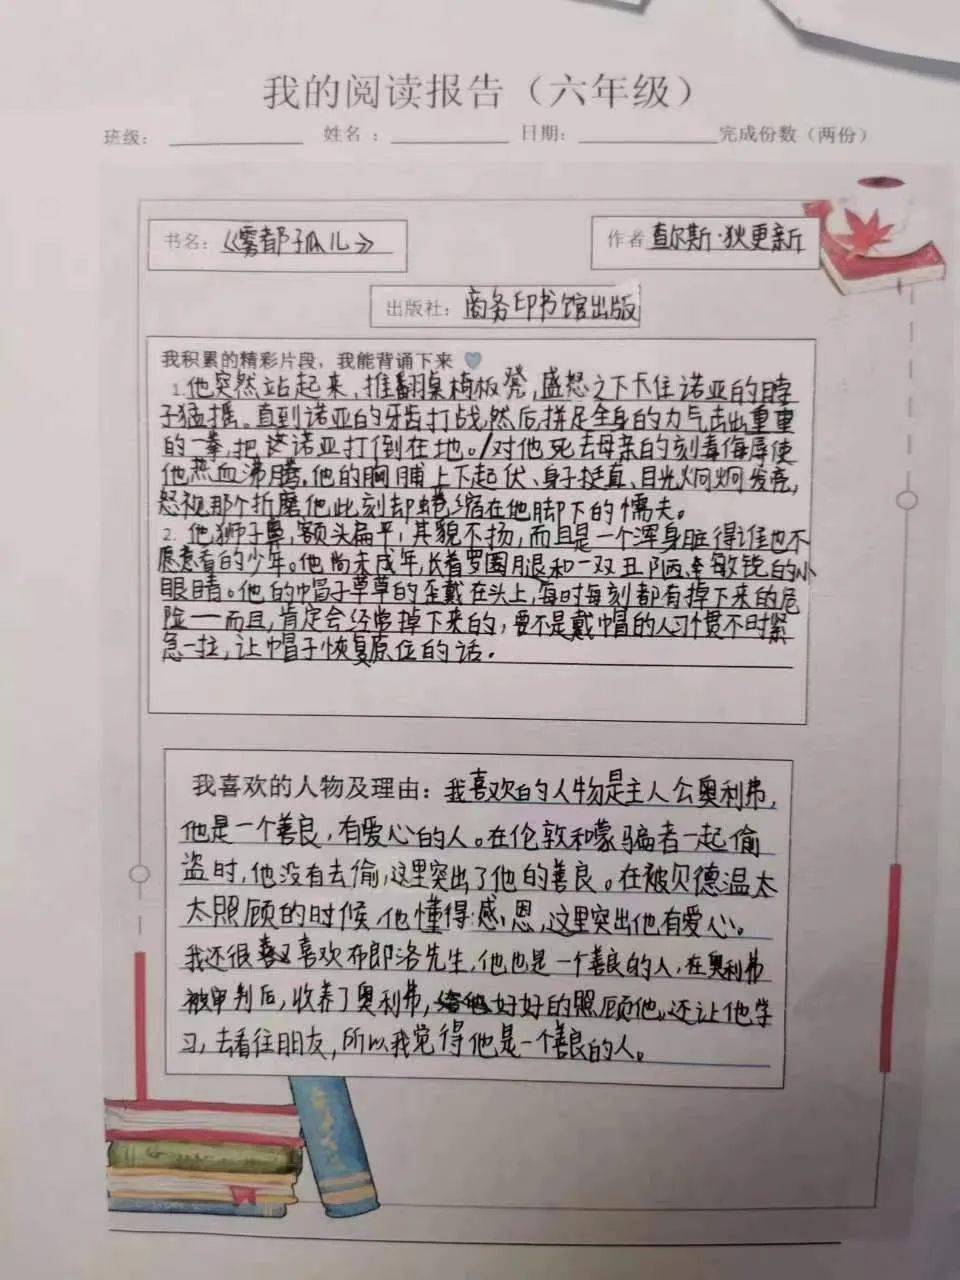 我的阅读报告（六年级）
班级： 姓名： 日期： 完成份数（两份）
书名：《雾都孤儿》 作者 查尔斯·狄更新
出版社：商务印书馆出版
我积累的精彩片段，我能背诵下来
1.他突然站起来，推翻桌椅板凳，盛怒之下卡住诺亚的脖
子猛摇。直到诺亚的牙齿打战，然后，拼足全身的力气击出重重
的一拳，把诺亚打倒在地。对他死去母亲的刻毒侮辱使
他热血沸腾。他的胸脯上下起伏、身子挺直、目光炯炯发亮，
怒视那个折磨他此刻却蜷缩在他脚下的懦夫。
2. 他狮子鼻，额头扁平，其貌不扬，而且是一个浑身脏得谁也不
愿意看的少年。他尚未成年，长着罗圈腿和一双丑陋、敏锐的小
眼睛。他的帽子草草的歪戴在头上，每时每刻都有掉下来的危
险一一而且，肯定会经常掉下来的，要不是戴帽的人习惯不时紧
急一拉，让帽子恢复原位的话。
我喜欢的人物及理由：我喜欢的人物是主人公奥利弗，
他是一个善良，有爱心的人。在伦敦和蒙骗者一起偷
盗时，他没有去偷，这里突出了他的善良。在被贝德温太
太照顾的时候，他懂得感恩，这里突出他有爱心。
我还很喜欢布即洛先生，他也是一个善良的人，在奥利弗
被审判后，收养了奥利弗，好好的照顾他。还让他学
习，去看往朋友，所以我觉得他是一个善良的人。